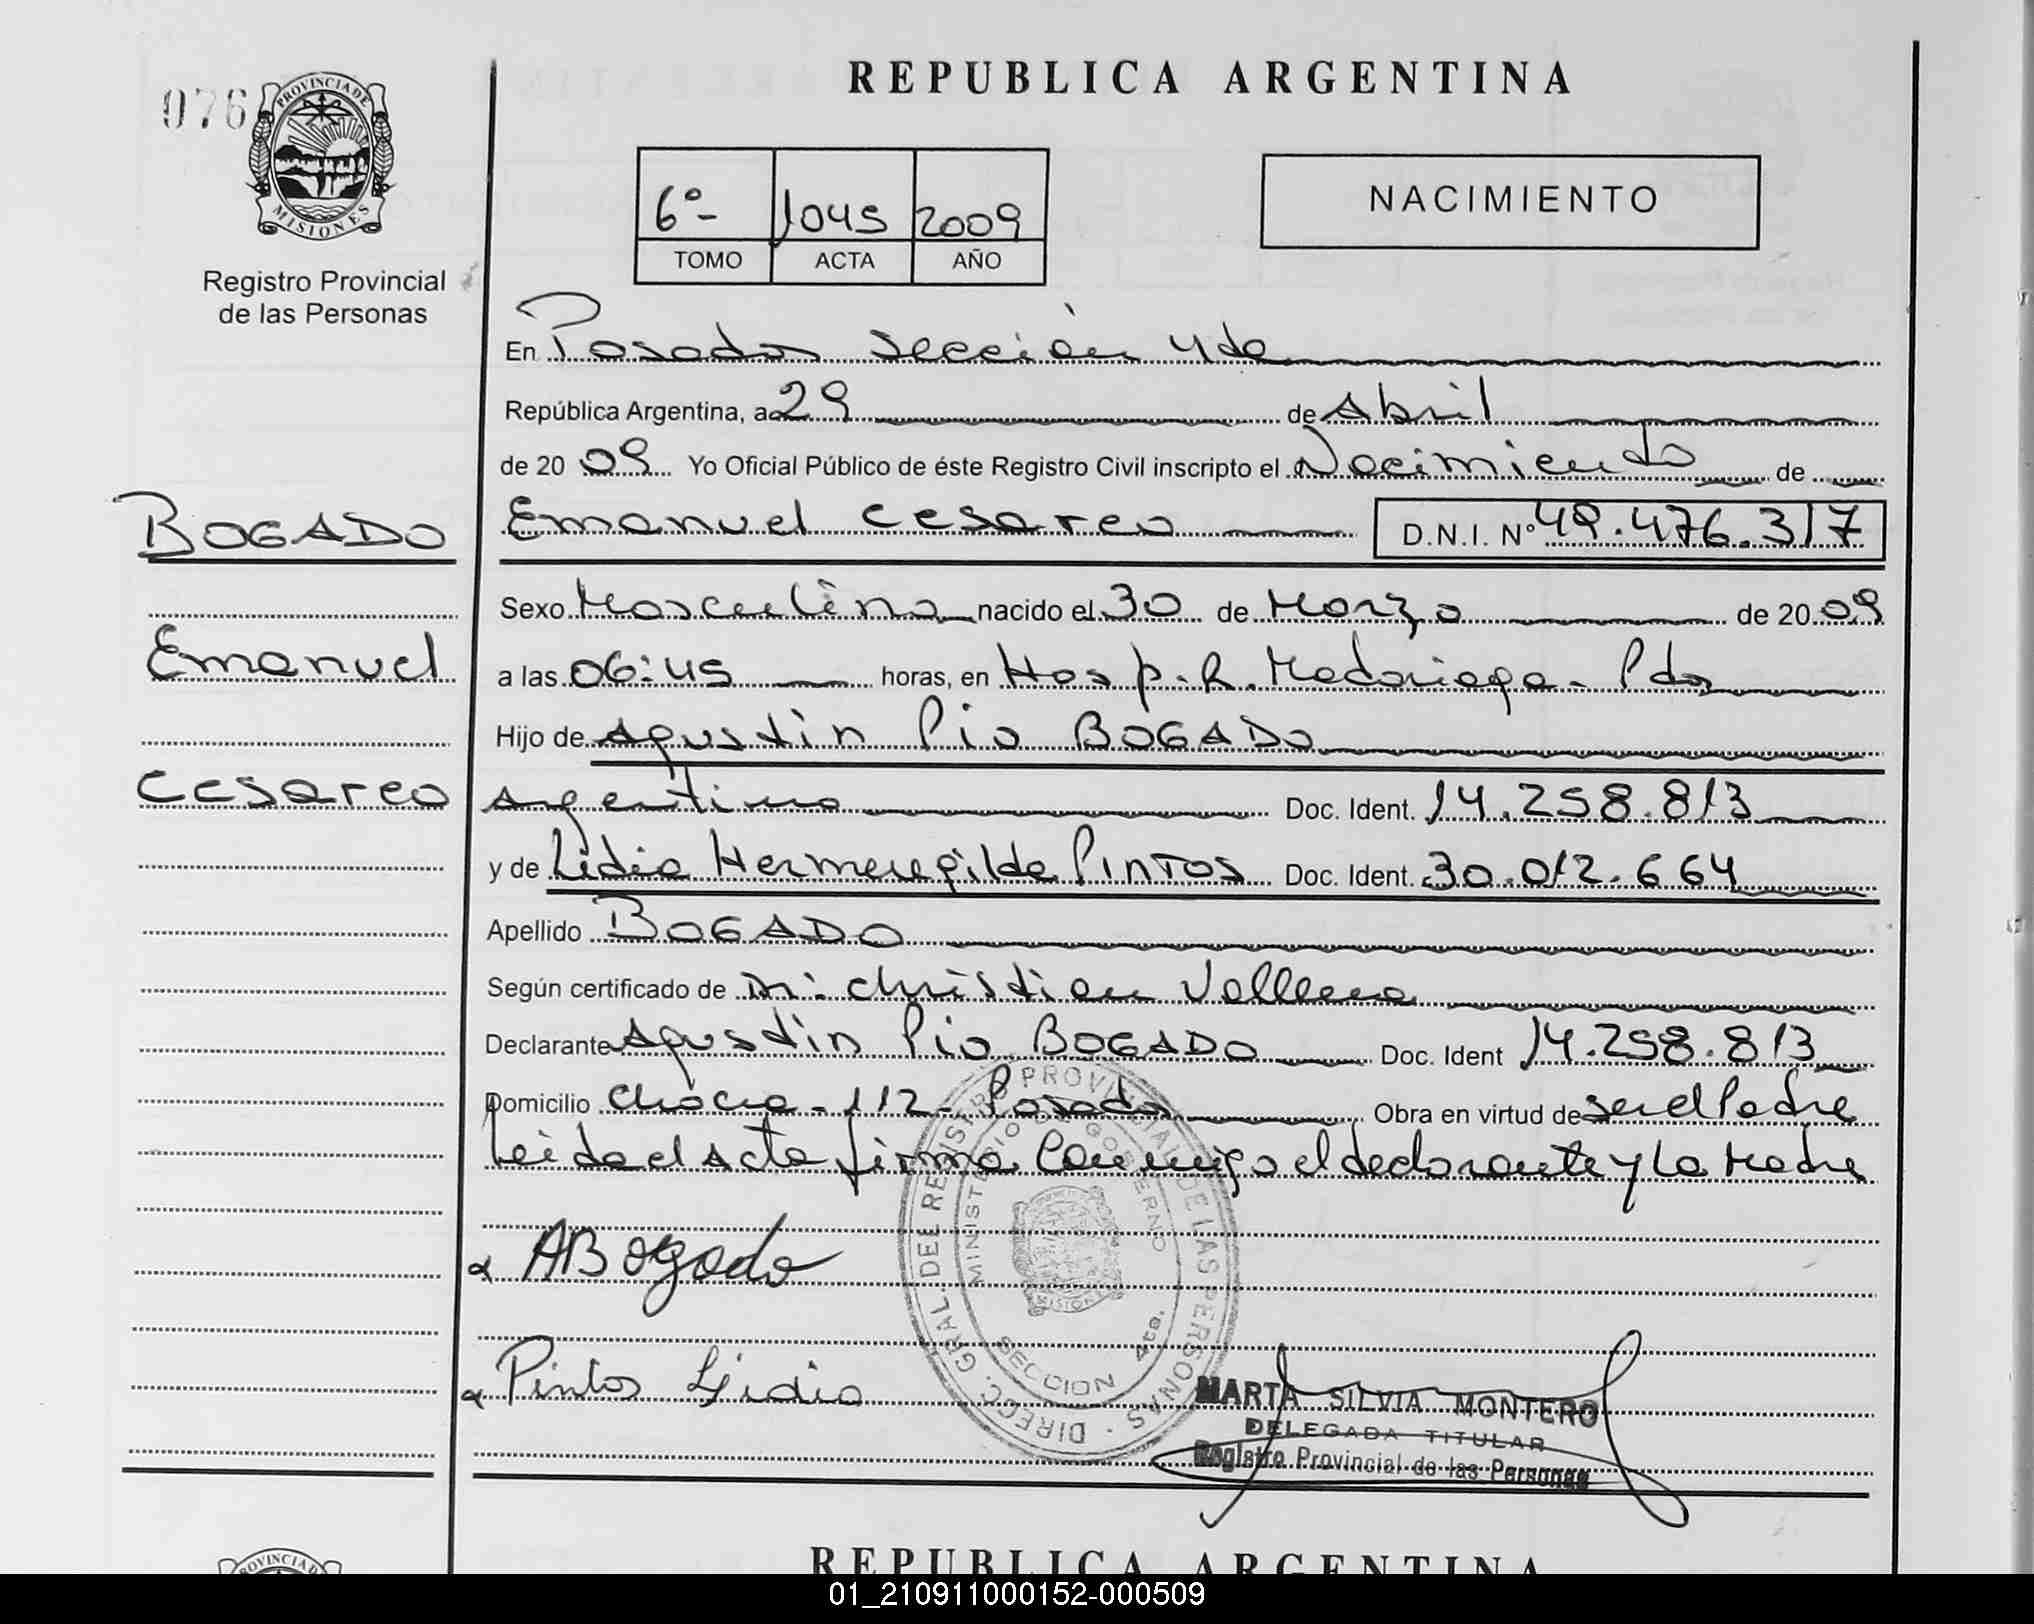 REPUBLICA ARGENTINA
076
PROVINCIA DE
MISIONES
Registro Provincial
de las Personas
6º- 1045 2009
TOMO ACTA AÑO
NACIMIENTO
En Posadas sección 4da
República Argentina, a 29 de Abril
de 2009 Yo Oficial Público de éste Registro Civil inscripto el Nacimiento de
BOGADO
Emanuel Cesareo D.N.I. Nº 49.476.317
Sexo Masculino nacido el 30 de Marzo de 2009
Emanuel
a las 06:45 horas, en Hosp. R. Madariaga - Pdas
Hijo de Agustin Pio BOGADO
Cesareo
Argentino Doc. Ident. 14.258.813
y de Lidia Hermenegilda PINTOS Doc. Ident. 30.012.664
Apellido BOGADO
Según certificado de Dr. Christian
Declarante Agustin Pio BOGADO Doc. Ident 14.258.813
Domicilio Chacra - 112 - Posadas Obra en virtud de ser el Padre
Leida el Acta firma conmigo el declarante y la Madre
ABogado
Pintos Lidia
DIRECC. GRAL. DEL REGISTRO PROVINCIAL DE LAS PERSONAS
MINISTERIO DE GOBIERNO
MISIONES
SECCION 4ta.
MARTA SILVIA MONTERO
DELEGADA TITULAR
Registro Provincial de las Personas
PROVINCIA D
REPUBLICA ARGENTINA
01_210911000152-000509